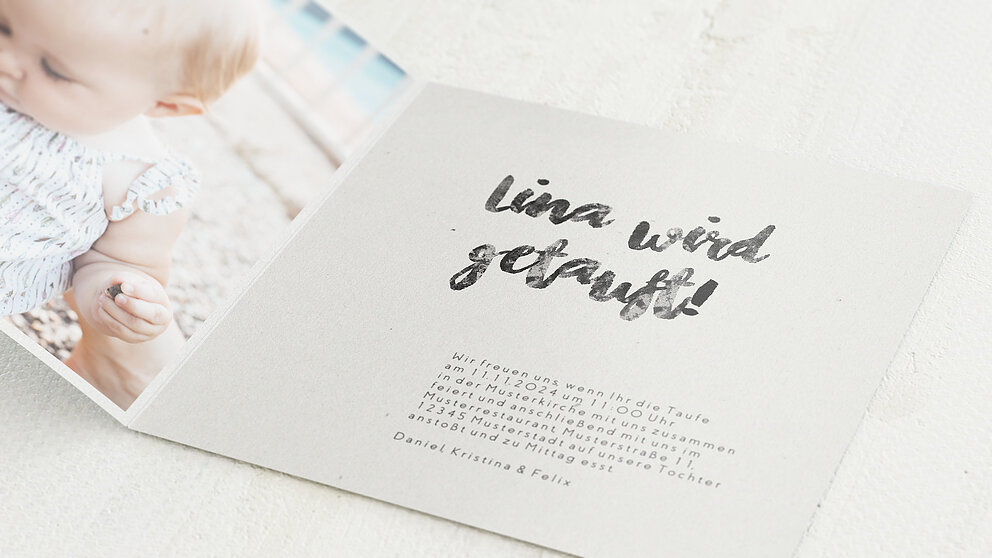 Lina wird
getauft!
Wir freuen uns, wenn Ihr die Taufe
am 11.11.2024 um 11:00 Uhr
in der Musterkirche mit uns zusammen
feiert und anschließend mit uns im
Musterrestaurant, Musterstraße 11,
12345 Musterstadt auf unsere Tochter
anstoßt und zu Mittag esst
Daniel, Kristina & Felix